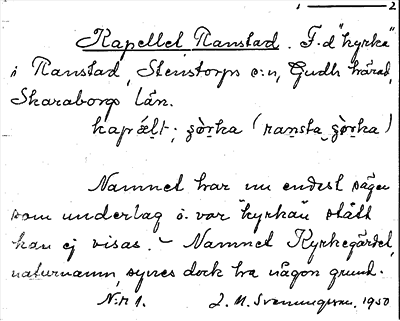 1 ——— 2
Kapellet Ranstad. F.d "kyrka"
i Ranstad, Stenstorps s:n, Gudh. härad,
Skaraborgs län.
Namnet har nu endast sägen
som underlag o. var "kyrkan" stått
kan ej visas. – Namnet Kyrkegärdet,
naturnamn, synes dock ha någon grund.
N:r 1. 1950